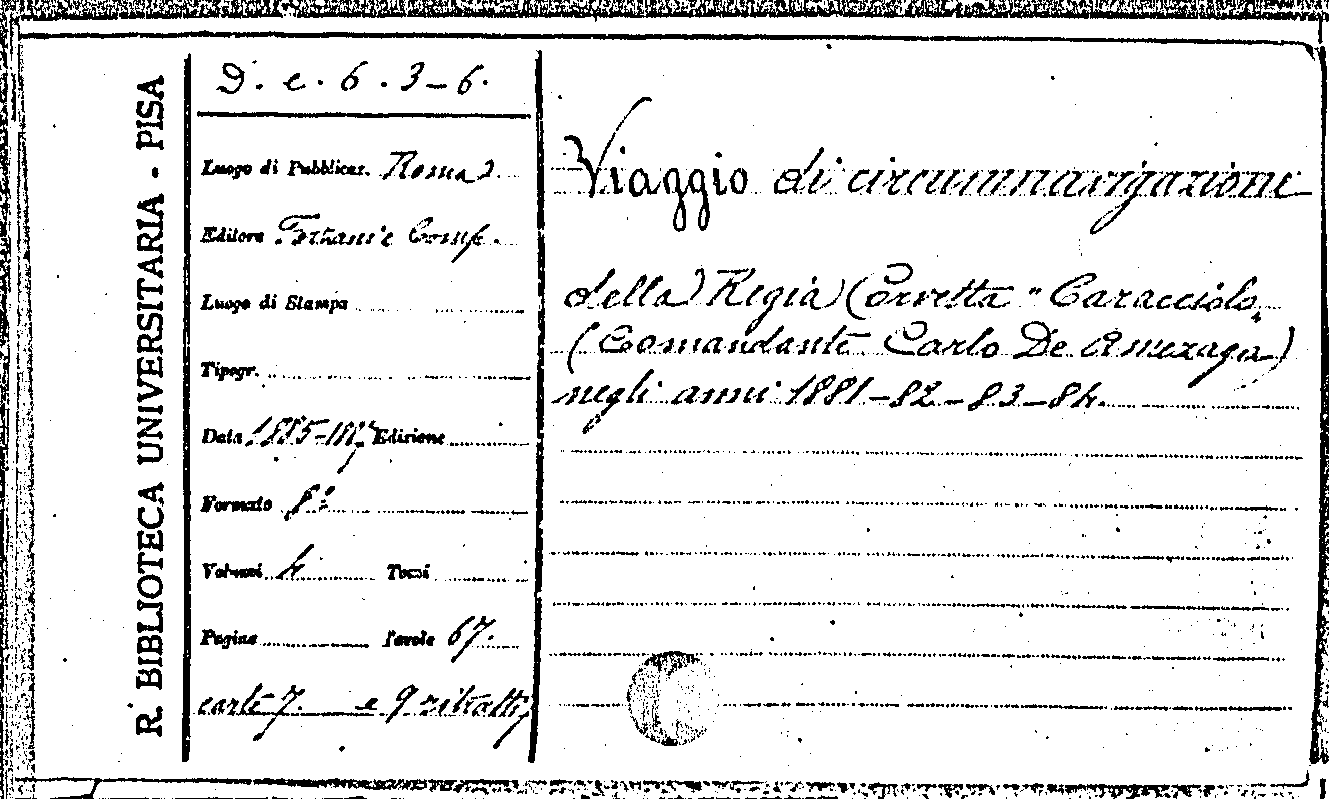 R. BIBLIOTECA UNIVERSITARIA - PISA
D. c. 6. 3-6.
Luogo di Pubblicaz. Roma
Editore Forzani e Comp.
Luogo di Stampa
Tipogr.
Data 1885- Edizione
Formato 8º
Volumi 4 Tomi
Pagine Tavole 67.
carte 7. e 9 ritratti
Viaggio di circumnavigazione
della Regia Corvetta "Caracciolo"
(Comandante Carlo De Amezaga)
negli anni 1881-82-83-84.